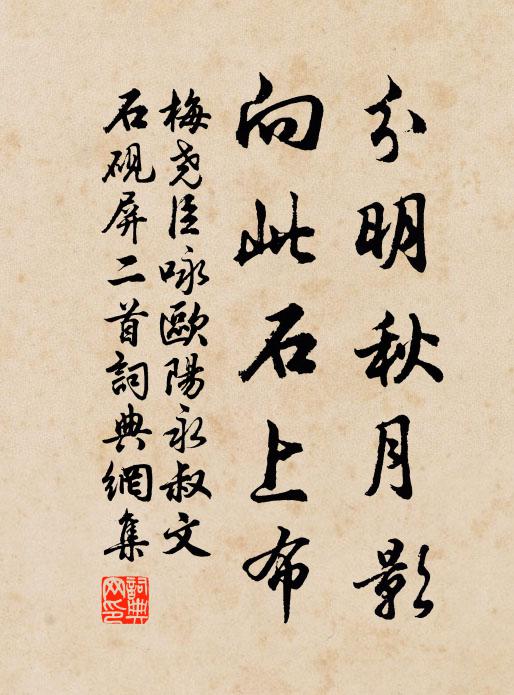 分明秋月影
向此石上布
梅尧臣咏歐陽永叔文
石硯屏二首詞典網集
詞典
网印